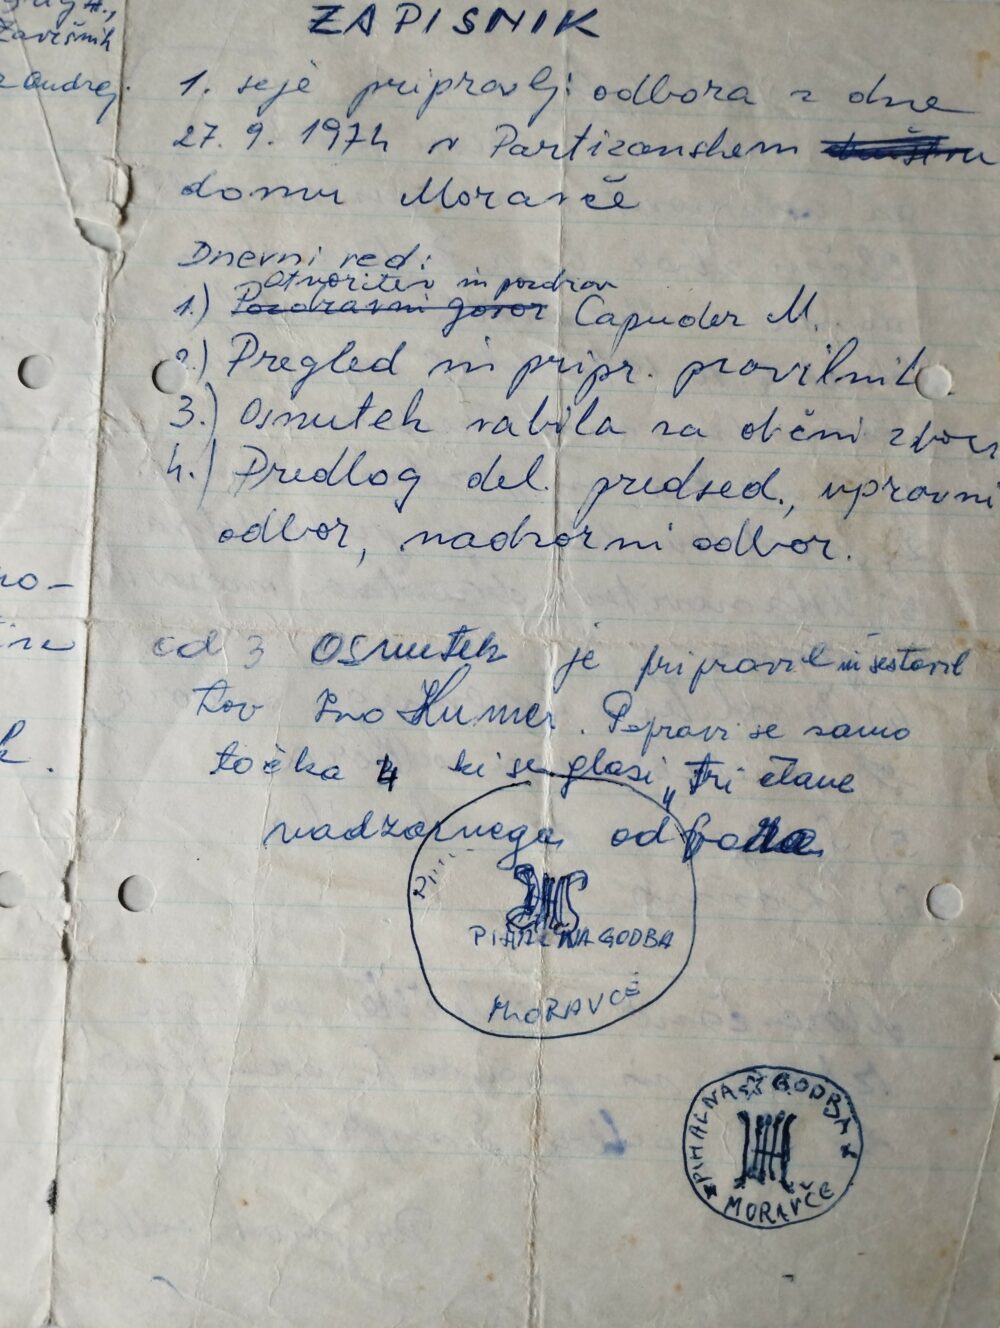 Zavešnik
Ondrej.
ZAPISNIK
1. seje pripravlj. odbora z dne
27. 9. 1974 v Partizanskem društvu
domu Moravče
Dnevni red:
otvoritev in pozdrav
1.) Pozdravni govor Capuder M.
2.) Pregled in pripr. pravilnik.
3.) Osnutek vabila za občni zbor
4.) Predlog del. predsed., upravni
odbor, nadzorni odbor.
ad 3 Osnutek je pripravil in sestavil
tov Ivo Humer. Popravi se samo
točka 4 ki se glasi "tri člane
nadzornega odbora
PIHALNA GODBA
MORAVČE
PIHALNA GODBA
MORAVČE